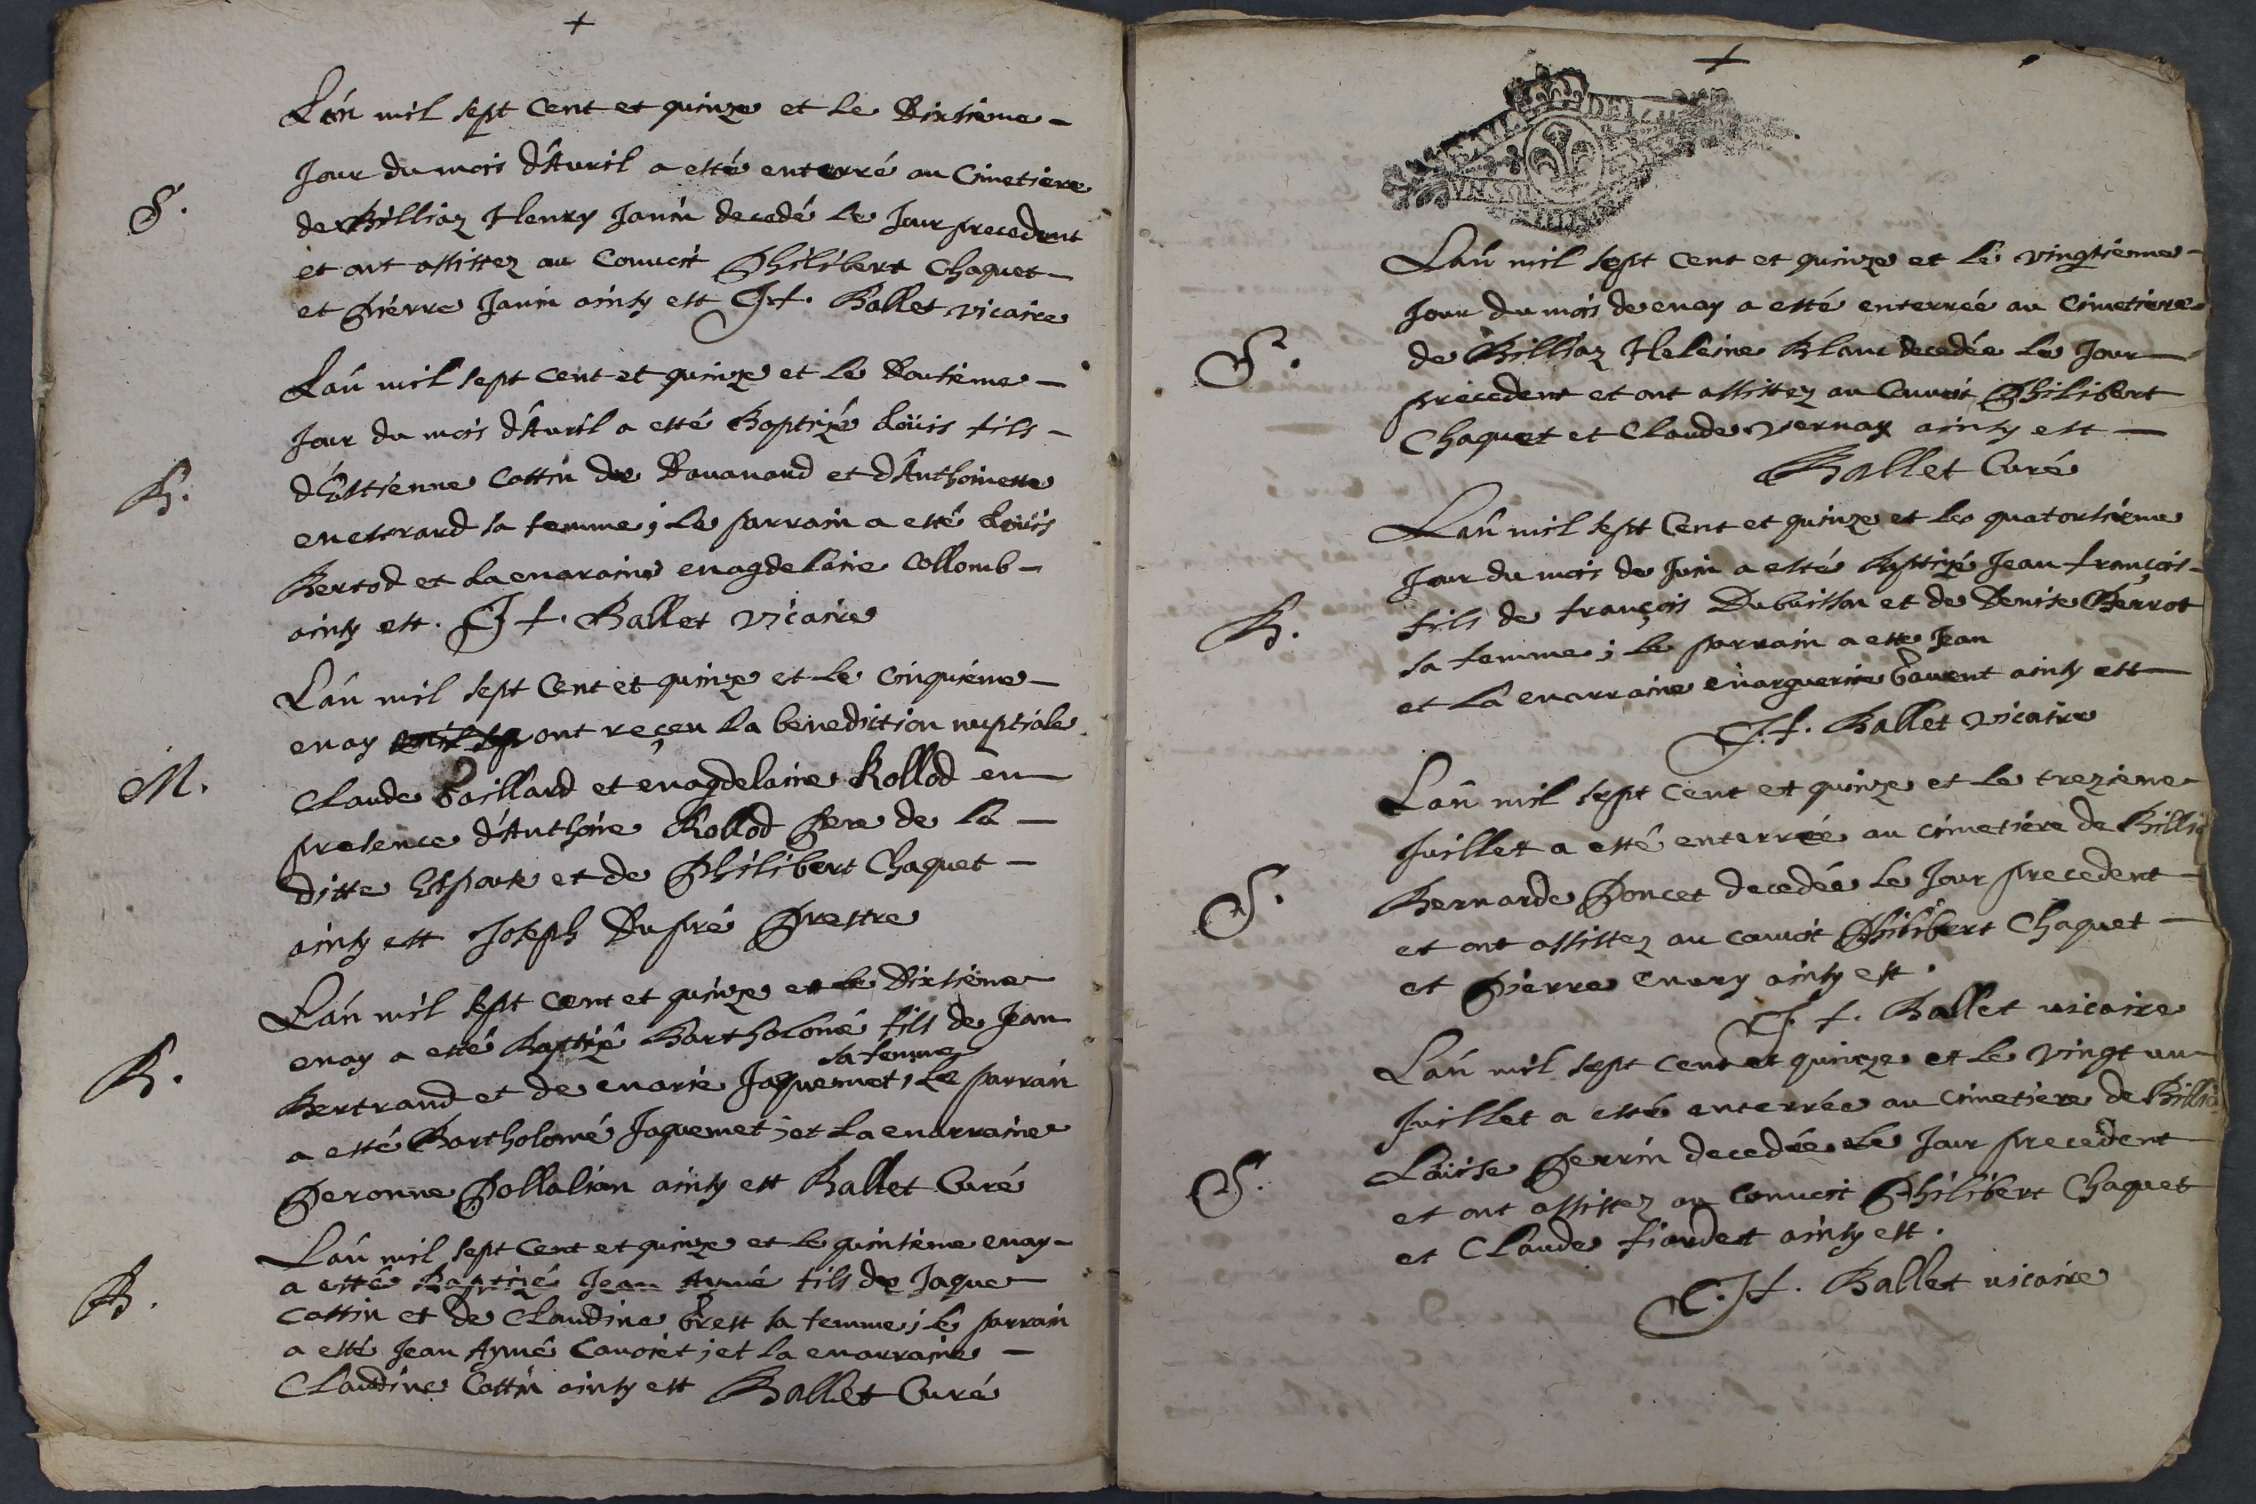 Lán mil sept Cent et quinze et le Dixsieme
Jour du mois d'Avril a esté enterré au Cimetiere
S.
de Billiaz Henry Janin decedé le Jour precedent
et ont assistez au Convoit Philibert Chaquet
et Pierre Janin ainsy est J f. Ballet vicaire
Lán mil sept cent et quinze et le Dousieme
Jour du mois d'Avril a esté Baptizé Loüis fils
B.
d'Estienne Cottin de Davanard et d'Anthoinette
sa femme; Le parrain a esté Loüis
Bertod et La maraine Magdelaine Collomb
ainsy est. J f. Ballet vicaire
Lán mil sept Cent et quinze et le Cinquiéme
May ont reçeu la benediction nuptiale
M.
Claude Gaillard et Magdelaine Rollod en
presence d'Anthoine Rollod Pere de la
ditte Espouse et de Philibert Chaquet
ainsy est Joseph Dupré Prestre
Lán mil sept Cent et quinze et le Dixsiéme
May a esté Baptizé Bartholomé fils de Jean
sa femme
B.
Bertrand et de Marie Jaquemet, Le parrain
a esté Bartholomé Jaquemet; et La Marraine
Peronne Pollalian ainsy est Ballet Curé
Lán mil sept Cent et quinze et le quinsieme May
a esté Baptizé Jean Aymé fils de Jaque
B.
Cottin et de Claudine Brest sa femme; Le parrain
a esté Jean Aymé Cavoret; et la Marraine
Claudine Cottin ainsy est Ballet Curé
Lán mil sept Cent et quinze et le vingtieme
Jour du mois de May a esté enterrée au Cimetiere
S.
de Billiaz Heleine Blanc decedée le Jour
precedent et ont assistez au Convoit Philibert
Chaquet et Claude Vernay ainsy est
Ballet Curé
Lán mil sept Cent et quinze et le quatorsieme
Jour du mois de Juin a esté Baptizé Jean François
B.
fils de François Dubuisson et de Denise Perrot
sa femme; Le parrain a esté Jean
et La Marraine Marguerite ainsy est
J. f. Ballet vicaire
Lán mil sept Cent et quinze et le trezieme
Juillet a esté enterrée au Cimetiere de Billia
S.
Bernarde Poncet decedée le Jour precedent
et ont assistez au Convoit Philibert Chaquet
et Pierre Mary ainsy est.
J. f. Ballet vicaire
Lán mil sept Cent et quinze et le vingt un
Juillet a esté enterrée au Cimetiere de Billia
S.
Loüise Perrin decedée le Jour precedent
et ont assistez au Convoit Philibert Chaquet
et Claude fiardet ainsy est.
J f. Ballet vicaire